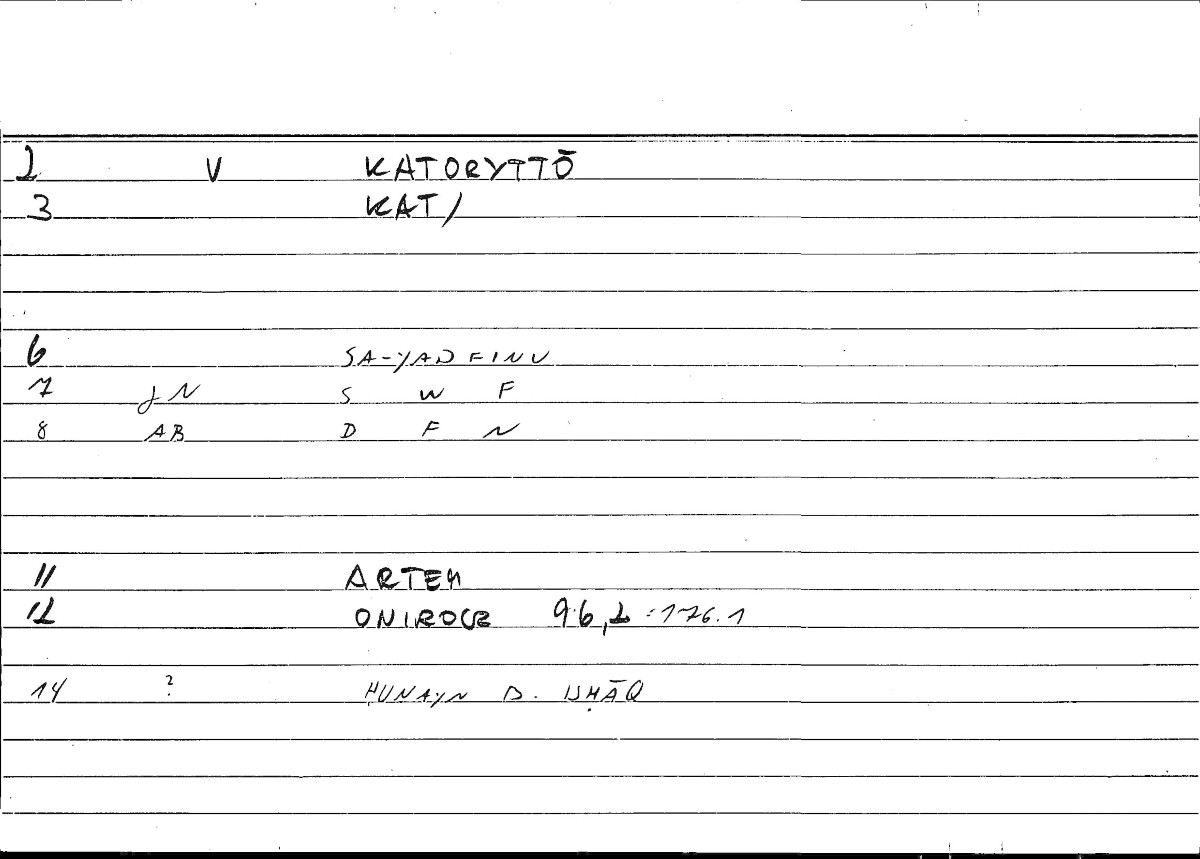 2 V KATORYTTŌ
3 KAT/
6 SA-YADFINU
7 JN S W F
8 AB D F N
11 ARTEM
12 ONIROCR 96,2 = 176.1
14 ? ḤUNAYN B. ISḤĀQ